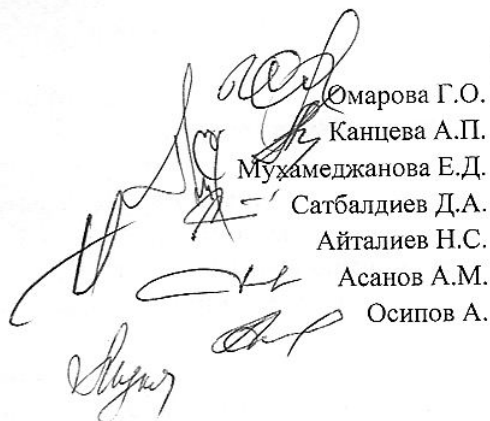 Омарова Г.О.
Канцева А.П.
Мухамеджанова Е.Д.
Сатбалдиев Д.А.
Айталиев Н.С.
Асанов А.М.
Осипов А.